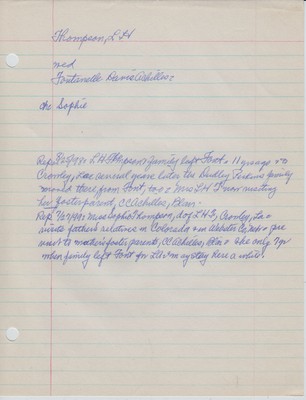 Thompson, L H
med
Fontanelle Bernie Achilles:
ch: Sophie
L H Thompson family left Font. 11 yrs ago to
Crowley, La several years later the Dudley Perkins family
moved there from Font, too: Mrs L H T now visiting
her foster parent, C C Achilles, Blair.
Rep Miss Sophie Thompson, d of L H T, Crowley, La
visits father's relatives in Colorado & in Webster Co, Neb
next to mother's foster parents, C C Achilles, Blair she only 7 yr
when family left Font for La & in mystery here a while.